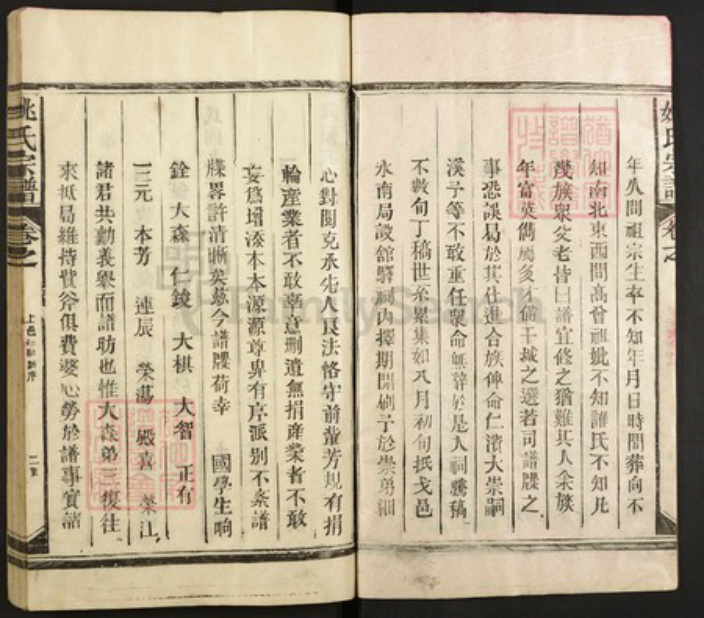 姚氏宗譜
卷之
年久問祖宗生卒不知年月日時問葬向不
知南北東西問高曾祖妣不知誰氏不知凡
幾族眾父老皆曰譜宜修之猶難其人余族
年富英儁屬多才備干城之選若司譜牒之
事恐誤易於其仕進合族俾命仁濱大崇嗣
漢予等不敢重任眾命無辭於是入祠謄稿
不數旬丁稿世系累集如八月初旬抵戈邑
永南局設舘驛祠內擇期開刷予於崇弟細
心對閱克承先人良法恪守前輩芳規有捐
輪產業者不敢率意刪遺無捐產業者不敢
妄爲增添本本源源尊卑有序派别不紊譜
牒畧許清晰矣茲今譜牒荷幸 國學生响
銓 大森 仁鋑 大棋 大智 正有
三元 本芳 連辰 榮蕩 殿喜 榮江
諸君共勷義舉而譜助也惟大森弟三復往
來抵局維持費斧俱費婆心勞於譜事實諸
姚氏宗譜
卷之
FamilySearch